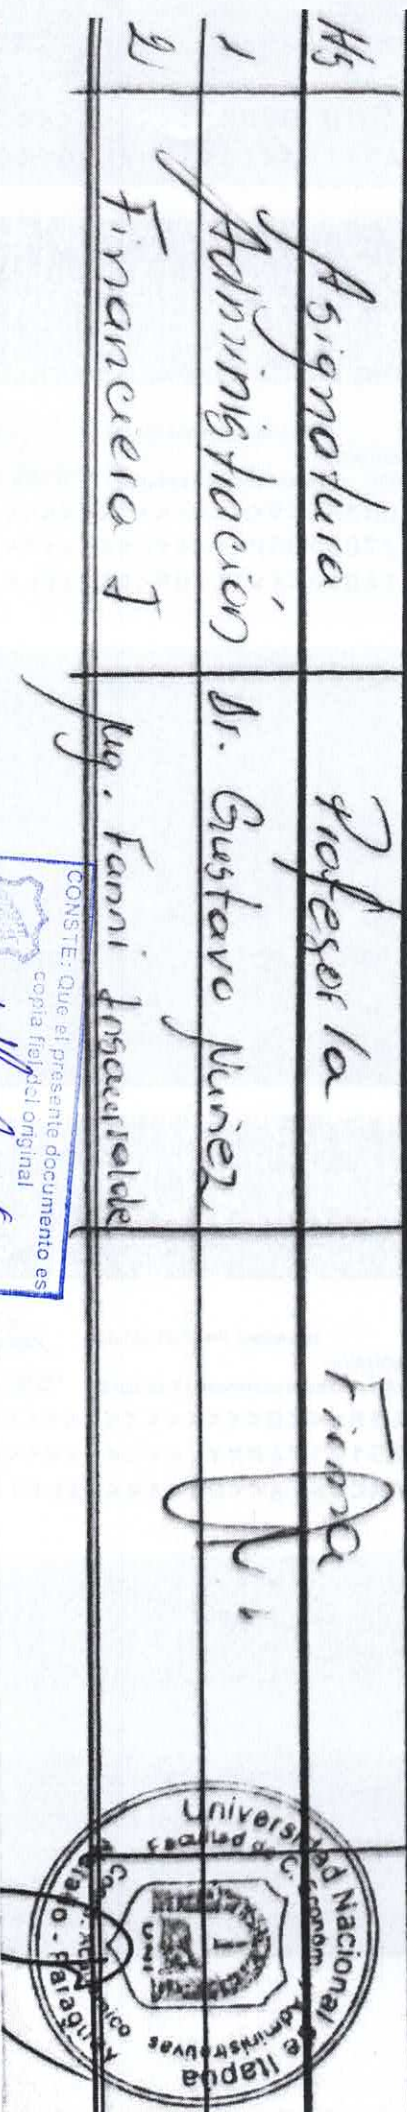 Hs Asignatura Profesor/a Firma
1 Administración Dr. Gustavo Nuñez
2 Financiera I Mg. Fanni Insaurralde
CONSTE: Que el presente documento es
copia fiel del original
Universidad Nacional de Itapúa
Facultad de C. Económ Administrativas
UNI
Paraguay